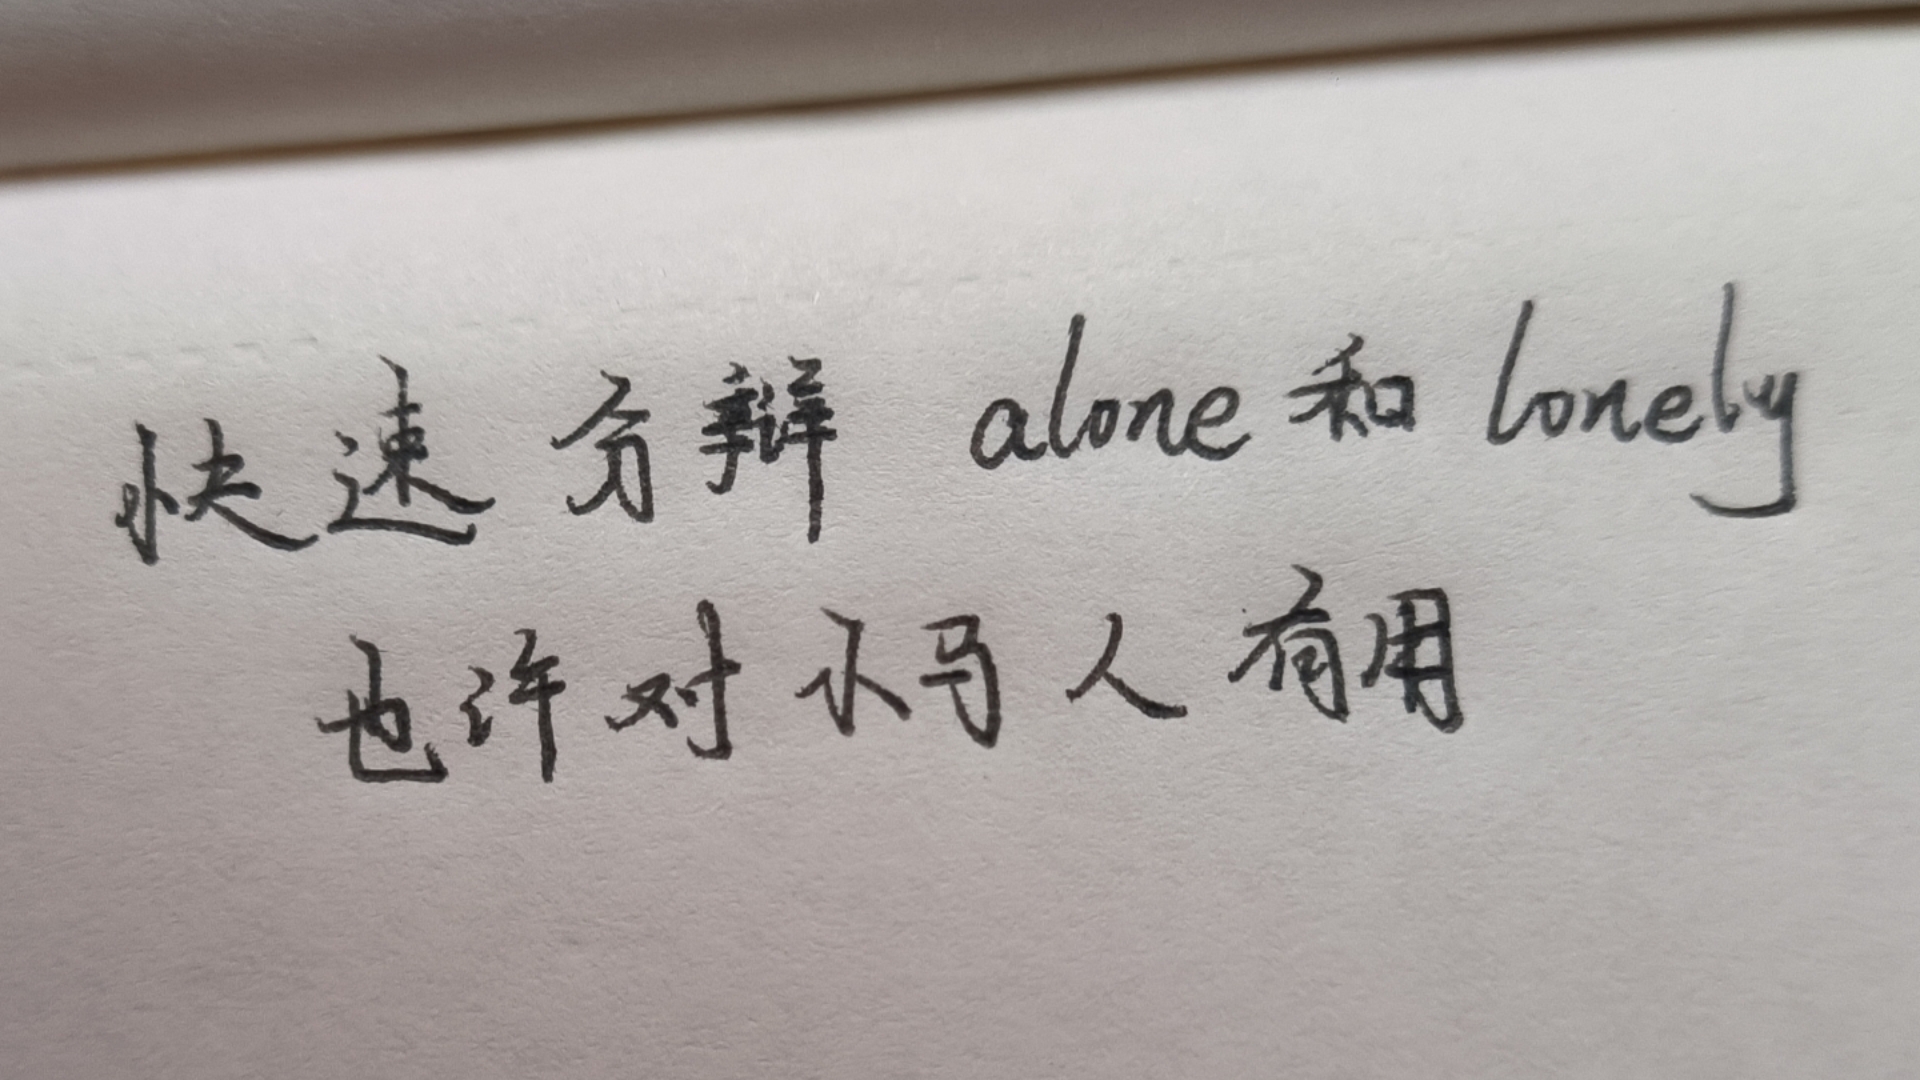 快速分辩 alone 和 lonely
也许对小马人有用